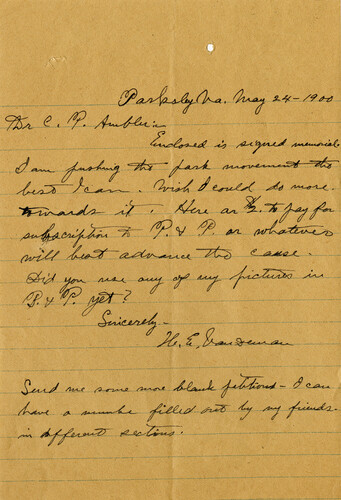 Parksley Va. May 24 - 1900
Dr C. P. Ambler:
Enclosed is signed memorial
I am pushing the park movement the
best I can. Wish I could do more
towards it. Here are to pay for
subscription to P. & P. or whatever
will best advance the cause.
Did you use any of my pictures in
P. & P. yet?
Sincerely -
H. E. Van Deman
Send me some more blank petitions - I can
have a number filled out by my friends
in different sections.